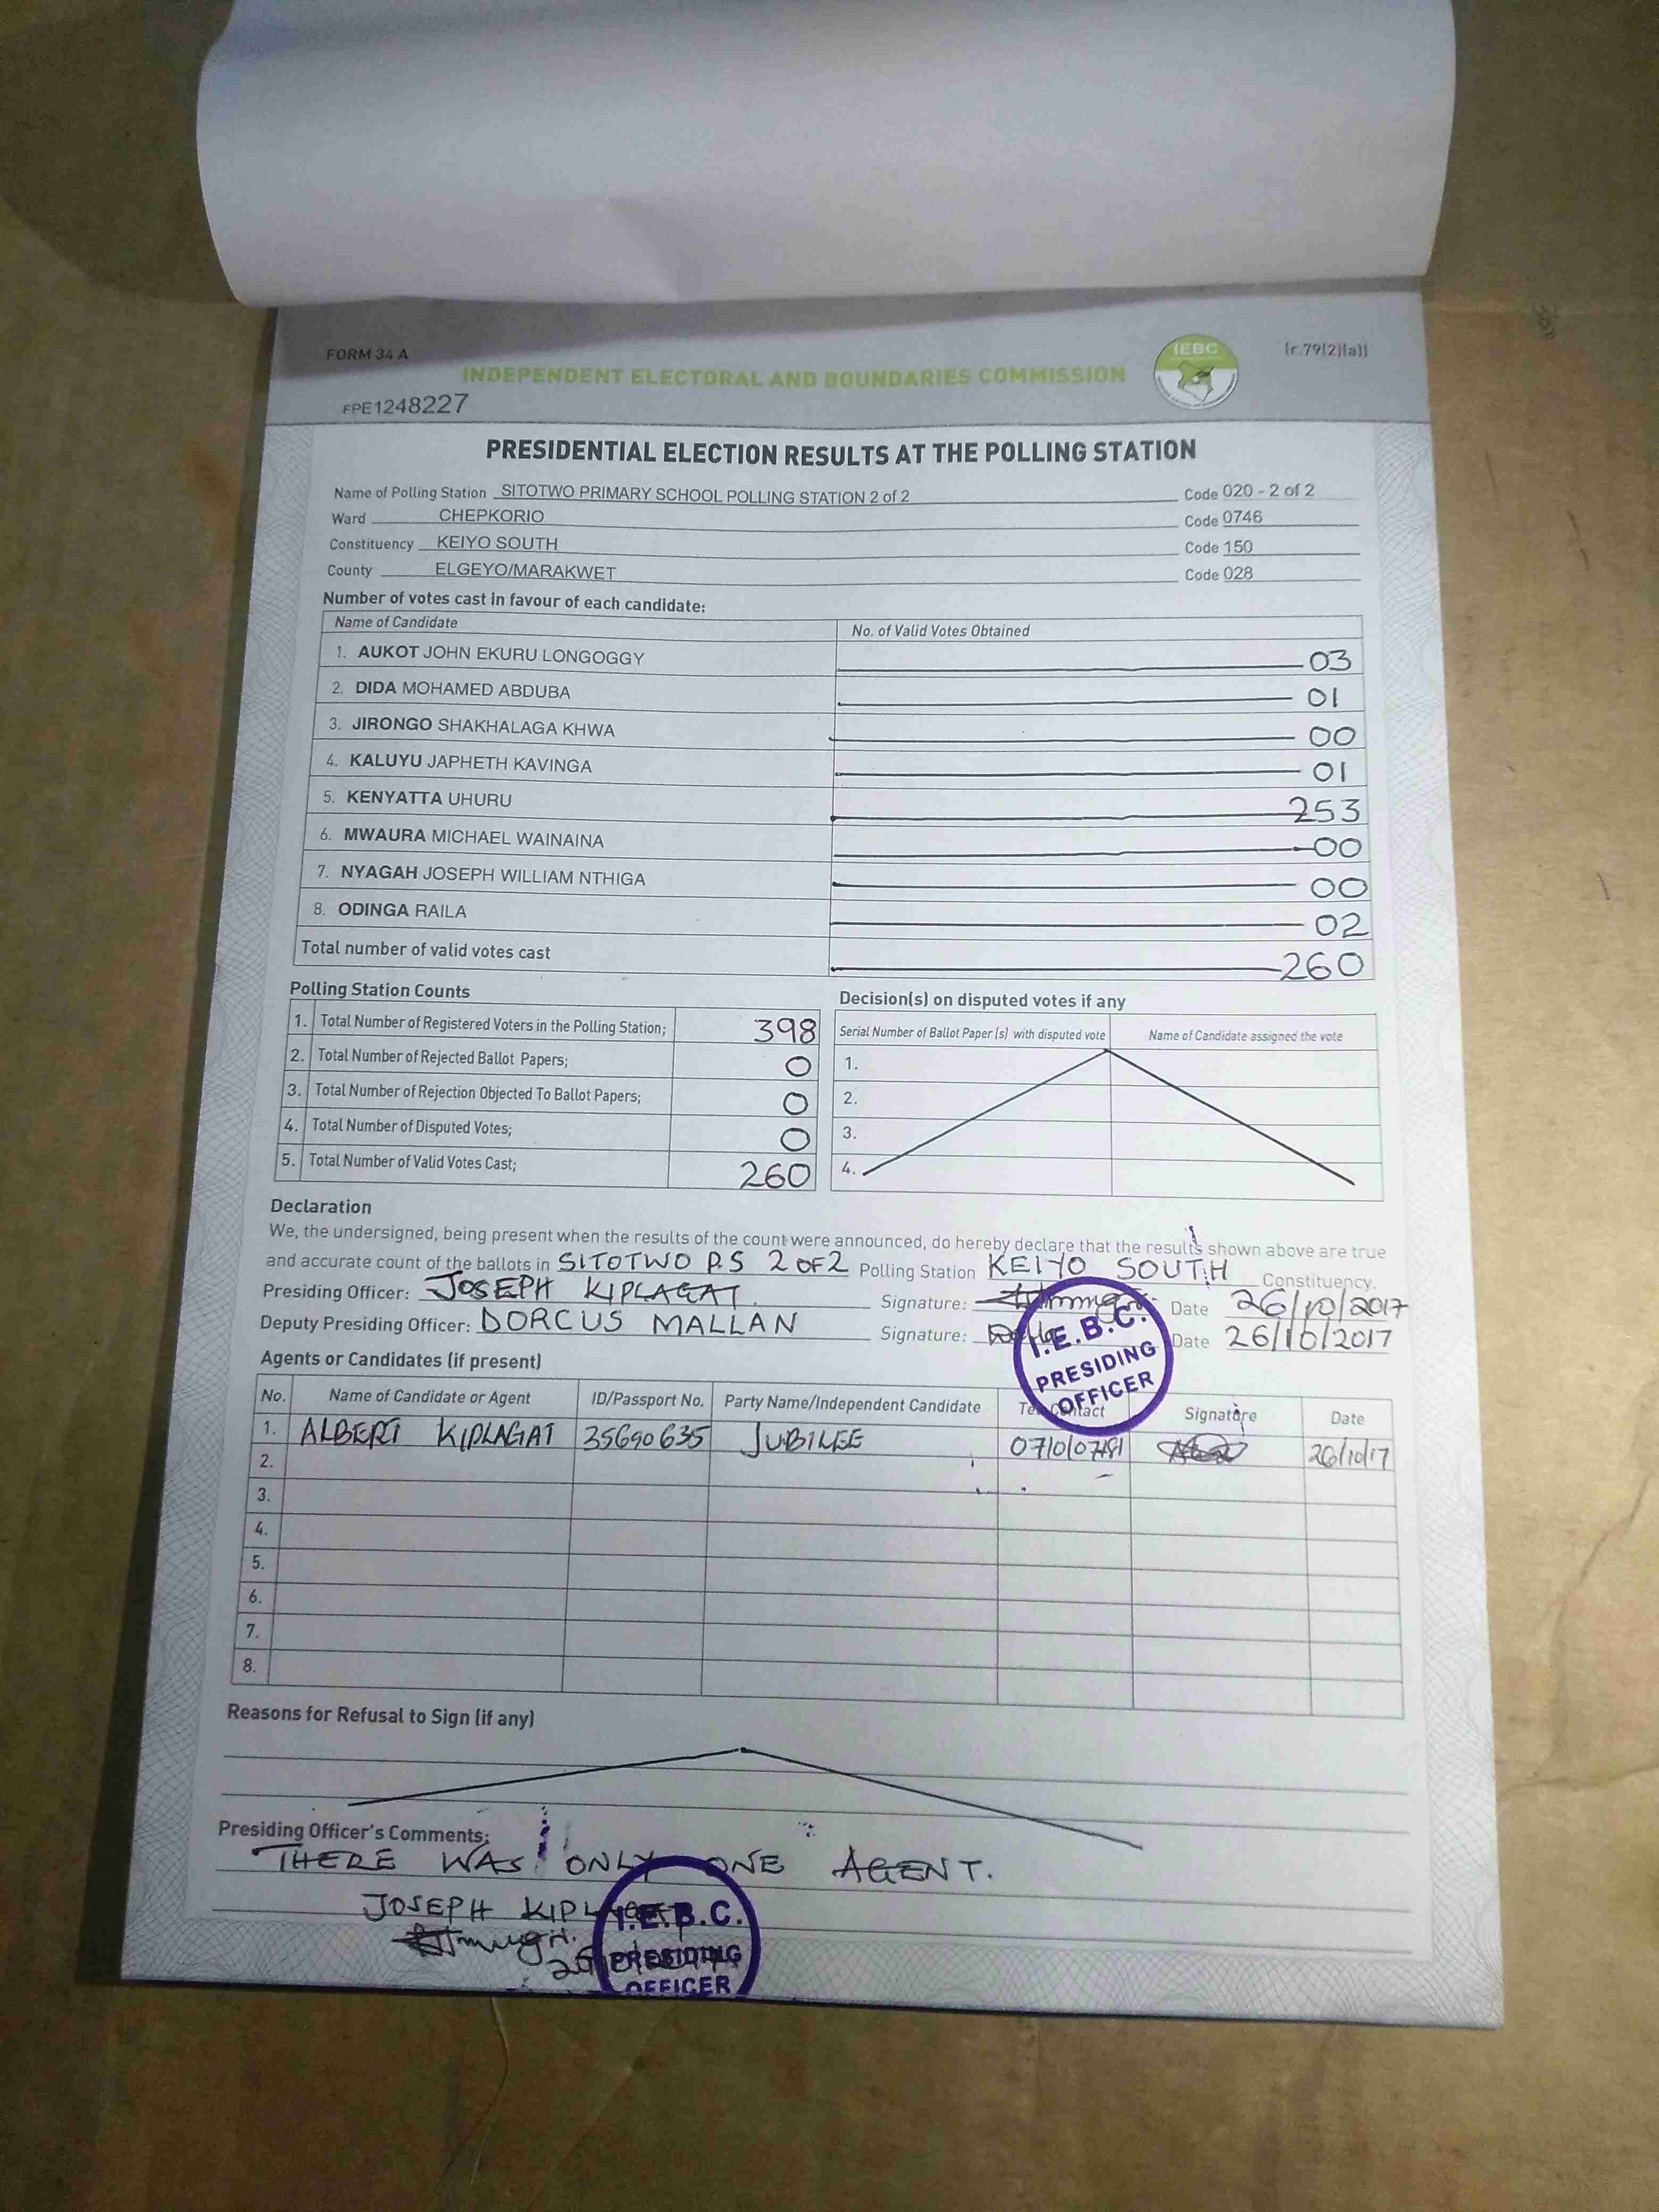 FORM 34 A
IEBC
[r.79(2)(a)]
INDEPENDENT ELECTORAL AND BOUNDARIES COMMISSION
FPE1248227
PRESIDENTIAL ELECTION RESULTS AT THE POLLING STATION
Name of Polling Station SITOTWO PRIMARY SCHOOL POLLING STATION 2 of 2 Code 020 - 2 of 2
Ward CHEPKORIO Code 0746
Constituency KEIYO SOUTH Code 150
County ELGEYO/MARAKWET Code 028
Number of votes cast in favour of each candidate:
Name of Candidate No. of Valid Votes Obtained
1. AUKOT JOHN EKURU LONGOGGY 03
2. DIDA MOHAMED ABDUBA 01
3. JIRONGO SHAKHALAGA KHWA 00
4. KALUYU JAPHETH KAVINGA 01
5. KENYATTA UHURU 253
6. MWAURA MICHAEL WAINAINA 00
7. NYAGAH JOSEPH WILLIAM NTHIGA 00
8. ODINGA RAILA 02
Total number of valid votes cast 260
Polling Station Counts
1. Total Number of Registered Voters in the Polling Station; 398
2. Total Number of Rejected Ballot Papers; 0
3. Total Number of Rejection Objected To Ballot Papers; 0
4. Total Number of Disputed Votes; 0
5. Total Number of Valid Votes Cast; 260
Decision(s) on disputed votes if any
Serial Number of Ballot Paper (s) with disputed vote Name of Candidate assigned the vote
1.
2.
3.
4.
Declaration
We, the undersigned, being present when the results of the count were announced, do hereby declare that the results shown above are true
and accurate count of the ballots in SITOTWO P.S 2 OF 2 Polling Station KEIYO SOUTH Constituency.
Presiding Officer: JOSEPH KIPLAGAT. Signature: Date 26/10/2017
Deputy Presiding Officer: DORCUS MALLAN Signature: Date 26/10/2017
I.E.B.C.
PRESIDING
OFFICER
Agents or Candidates (if present)
No. Name of Candidate or Agent ID/Passport No. Party Name/Independent Candidate Tel. Contact Signature Date
1. ALBERT KIPLAGAT 35690635 JUBILEE 26/10/17
2.
3.
4.
5.
6.
7.
8.
Reasons for Refusal to Sign (if any)
Presiding Officer's Comments:
THERE WAS ONLY ONE AGENT.
JOSEPH
I.E.B.C.
PRESIDING
OFFICER